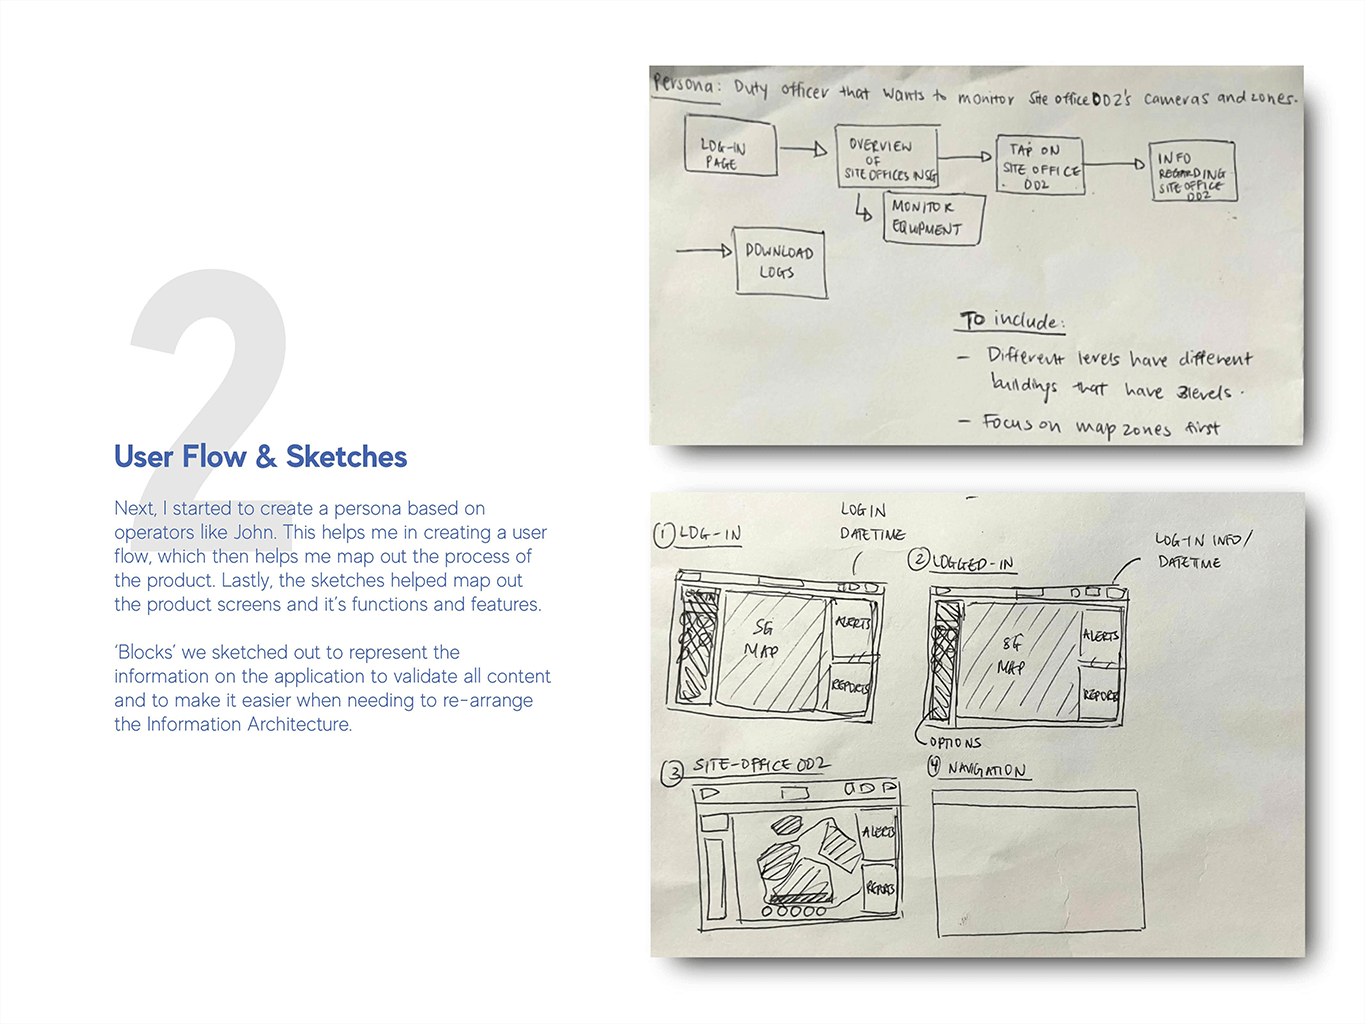 2
User Flow & Sketches
Next, I started to create a persona based on
operators like John. This helps me in creating a user
flow, which then helps me map out the process of
the product. Lastly, the sketches helped map out
the product screens and it's functions and features.
'Blocks' we sketched out to represent the
information on the application to validate all content
and to make it easier when needing to re-arrange
the Information Architecture.
Persona: Duty officer that wants to monitor Site office DD2's cameras and zones.
LOG-IN
PAGE
OVERVIEW
OF
SITE OFFICES IN SG
TAP ON
SITE OFFICE
DD2
INFO
REGARDING
SITE OFFICE
DD2
MONITOR
EQUIPMENT
DOWNLOAD
LOGS
To include:
- Different levels have different
buildings that have 3 levels.
- Focus on map zones first
① LOG-IN
LOG IN
DATETIME
SG
MAP
ALERTS
REPORTS
② LOGGED-IN
LOG-IN INFO/
DATETIME
SG
MAP
ALERTS
REPORTS
OPTIONS
③ SITE-OFFICE DD2
ALERTS
REPORTS
④ NAVIGATION